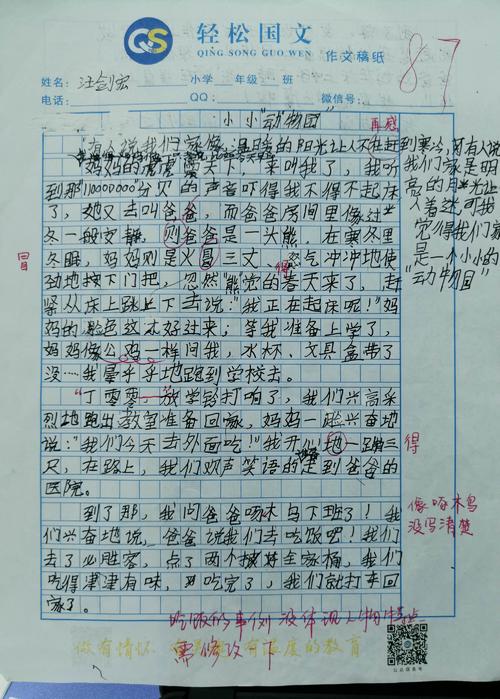 轻松国文
QING SONG GUO WEN
作文稿纸
87
姓名：汪剑宏 小学 年级 班
电话： QQ： 微信号：
小小"动物园"
再感
有人说我们家像温暖的阳光让人不在赶到寒冷，可有人说
我们家是明
亮的月光让
人着迷，可我
觉得我们家
是一个小小的
"动物园"
妈妈的 天下，来叫我了，我听
到那110000000分贝的声音吓得我不得不起床
了，她又去叫爸爸，而爸爸房间里像过
冬一般安静，则爸爸是一头熊，在寒冬里
冬眠，妈妈则是火冒三丈、怒气冲冲地使
冒
劲地按下门把，忽然"熊"觉的春天来了，赶
得
紧从床上跳上下去说："我正在起床呢！"妈
妈的脸色这才好过来；等我准备上学了，
妈妈像公鸡一样问我，水杯、文具盒带了
没…我晕乎乎地跑到学校去。
"丁零零——放学铃打响了，我们兴高采
烈地跑出教室准备回家，妈妈一起兴奋地
说："我们今天去外面吃！"我开心地一蹦三
得
尺，在路上，我们欢声笑语的走到爸爸的
医院。
到了那，我问爸爸啄木鸟下班了！我
像啄木鸟
没写清楚
们兴奋地说，爸爸说我们去吃饭吧！我们
去了必胜客，点了两个 全家桶，我们
吃得津津有味，吃完了，我们就打车回
家了。
吃饭的事例没体现人物特点
需修改下
做有情怀 有温度的教育